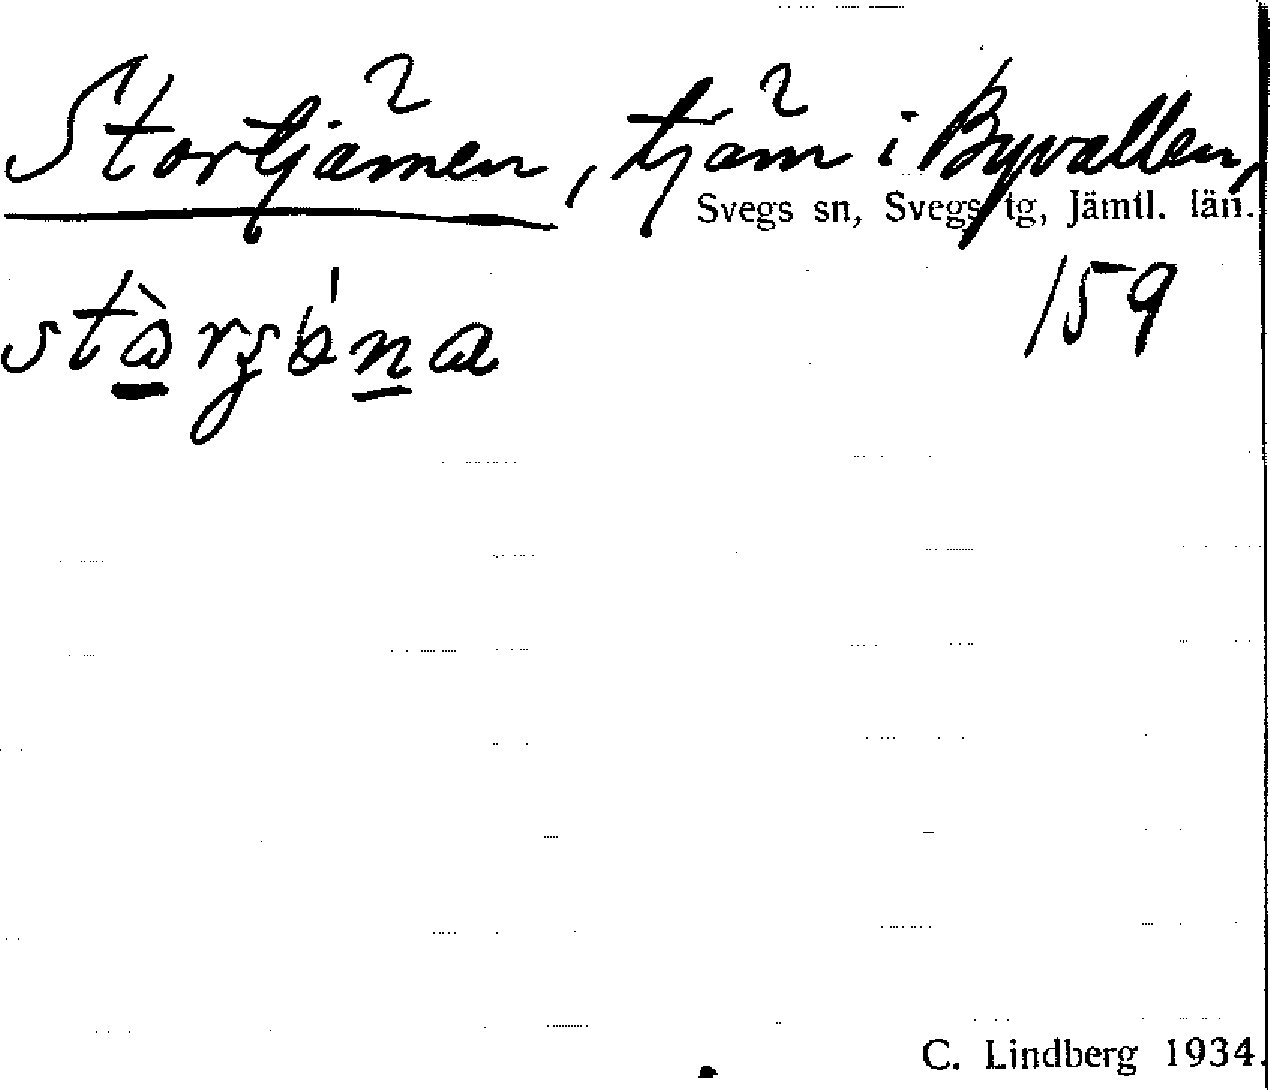 Stortjämen, tjäm i Byvallen,
Svegs sn, Svegs tg, Jämtl. län.
159
C. Lindberg 1934.